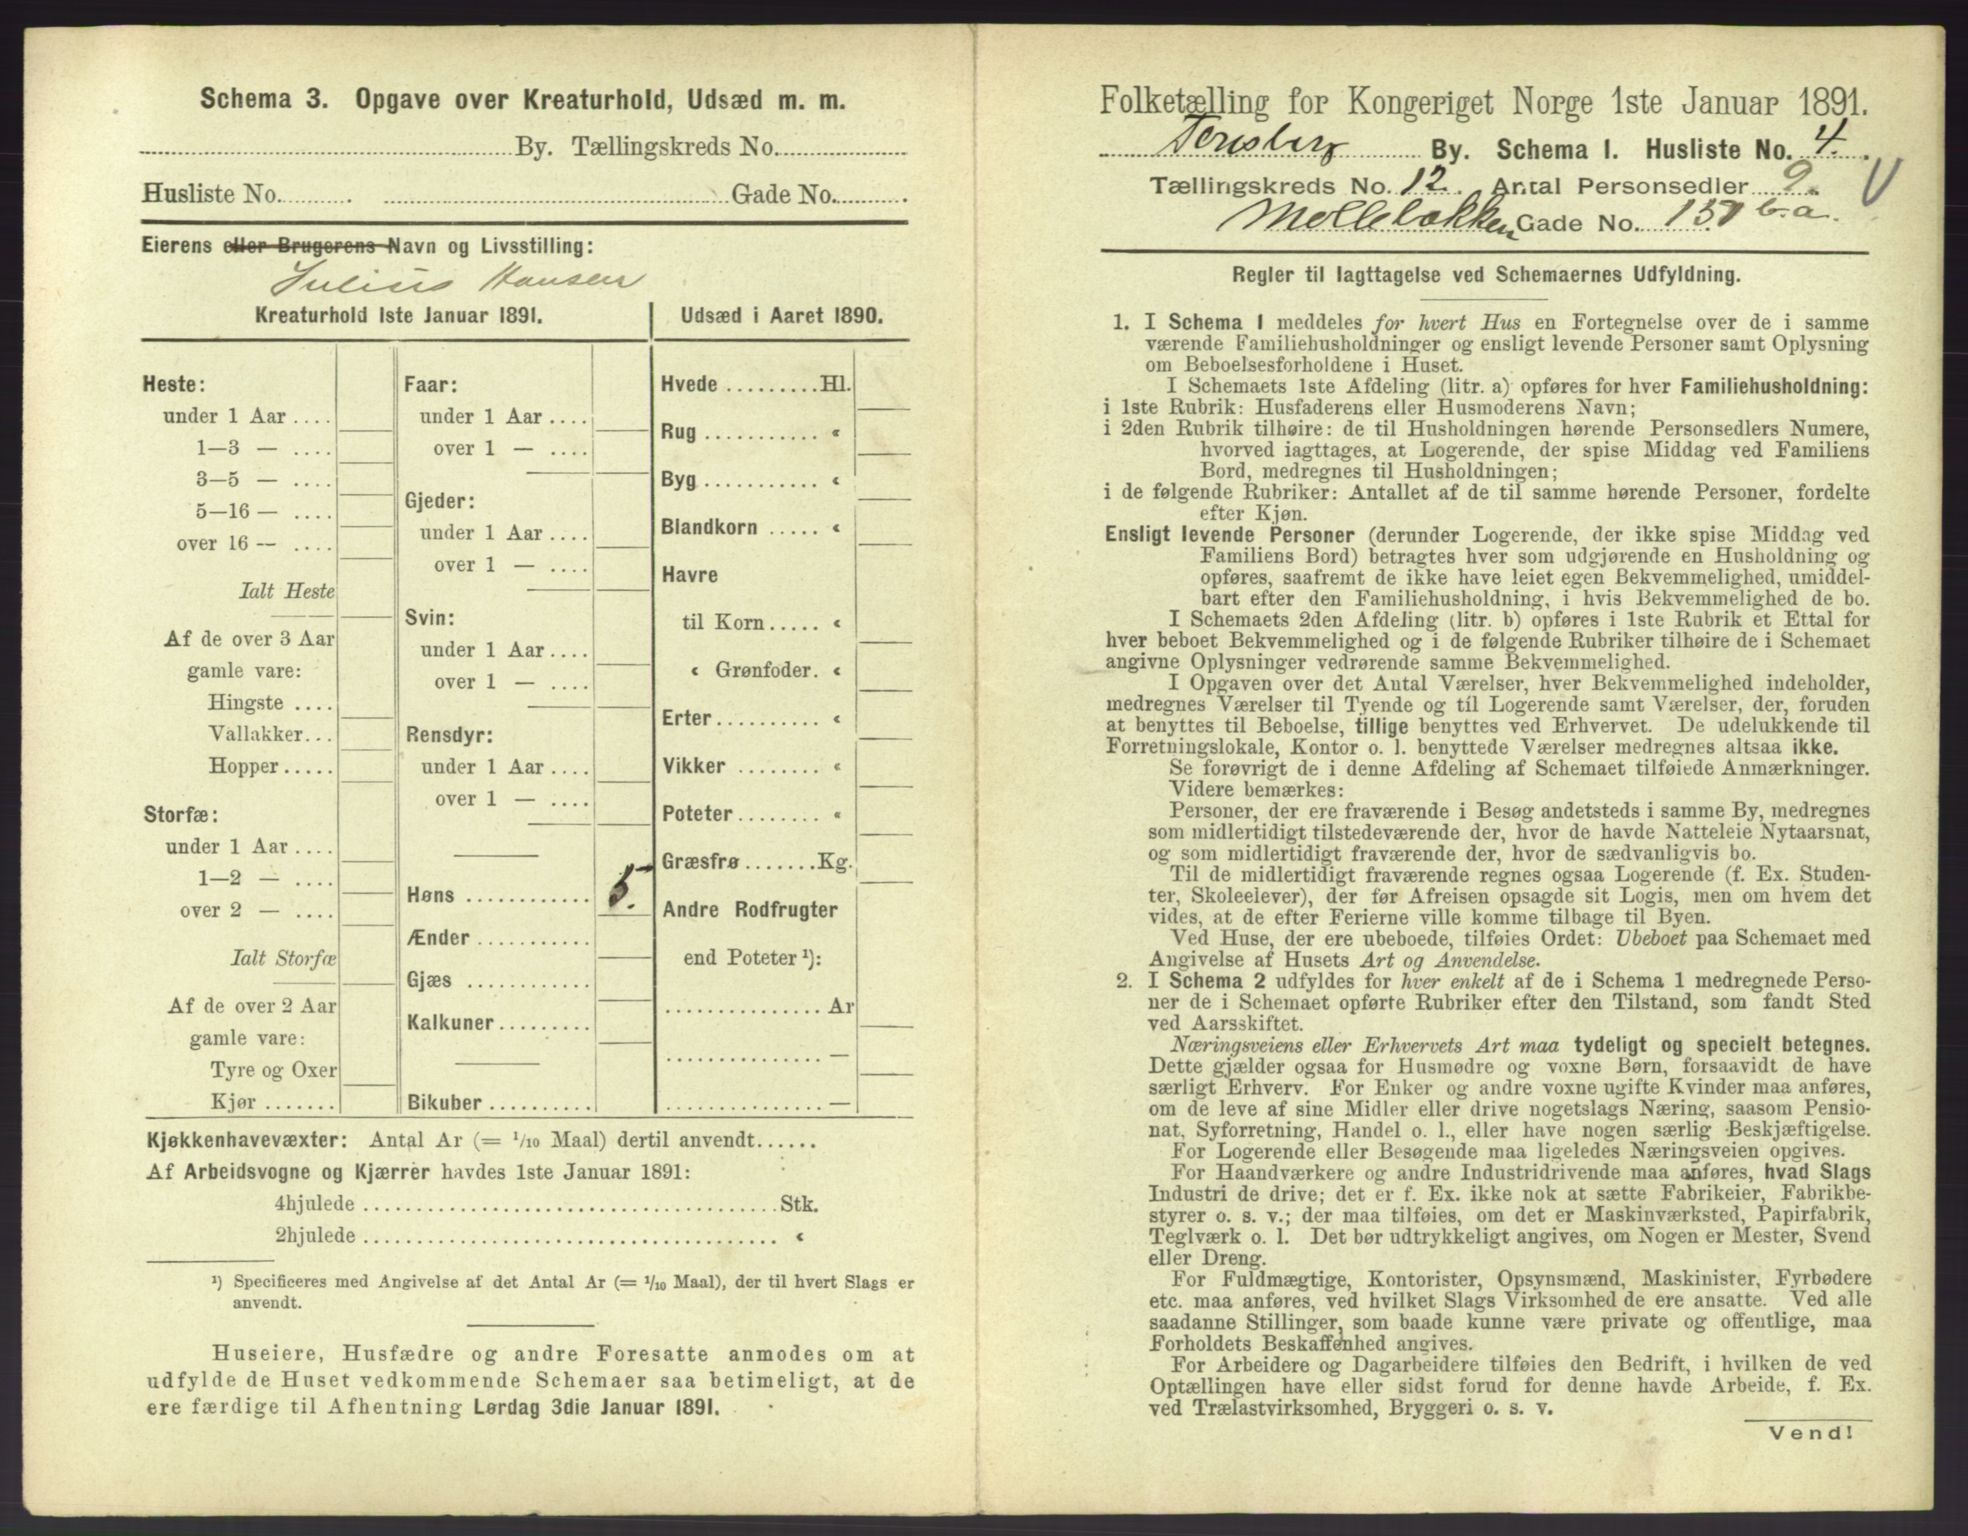 Schema 3. Opgave over Kreaturhold, Udsæd m. m.
By. Tællingskreds No.
Husliste No. Gade No.
Eierens eller Brugerens Navn og Livsstilling:
Julius Hansen
Kreaturhold 1ste Januar 1891.
Udsæd i Aaret 1890.
Heste:
under 1 Aar ....
1—3 — ....
3—5 — ....
5—16 — ....
over 16 — ....
Ialt Heste
Af de over 3 Aar
gamle vare:
Hingste ....
Vallakker...
Hopper.....
Storfæ:
under 1 Aar ....
1—2 — ....
over 2 — ....
Ialt Storfæ
Af de over 2 Aar
gamle vare:
Tyre og Oxer
Kjør .......
Faar:
under 1 Aar ....
over 1 — ....
Gjeder:
under 1 Aar ....
over 1 — ....
Svin:
under 1 Aar ....
over 1 — ....
Rensdyr:
under 1 Aar ....
over 1 — ....
Høns ............ 5.
Ænder ...........
Gjæs ............
Kalkuner.........
Bikuber ..........
Hvede .........Hl.
Rug ........... «
Byg ............ «
Blandkorn ..... «
Havre
til Korn ..... «
« Grønfoder. «
Erter........... «
Vikker ........ «
Poteter........ «
Græsfrø .......Kg.
Andre Rodfrugter
end Poteter ¹):
............... Ar
............... —
............... —
Kjøkkenhavevæxter: Antal Ar (= 1/10 Maal) dertil anvendt......
Af Arbeidsvogne og Kjærrer havdes 1ste Januar 1891:
4hjulede ........................................ Stk.
2hjulede ........................................ «
¹) Specificeres med Angivelse af det Antal Ar (= 1/10 Maal), der til hvert Slags er
anvendt.
Huseiere, Husfædre og andre Foresatte anmodes om at
udfylde de Huset vedkommende Schemaer saa betimeligt, at de
ere færdige til Afhentning Lørdag 3die Januar 1891.
Folketælling for Kongeriget Norge 1ste Januar 1891.
Tønsberg By. Schema I. Husliste No. 4.
Tællingskreds No. 12. Antal Personsedler 9.
Møllebakken Gade No. 151 b. a.
Regler til Iagttagelse ved Schemaernes Udfyldning.
1. I Schema 1 meddeles for hvert Hus en Fortegnelse over de i samme
værende Familiehusholdninger og ensligt levende Personer samt Oplysning
om Beboelsesforholdene i Huset.
I Schemaets 1ste Afdeling (litr. a) opføres for hver Familiehusholdning:
i 1ste Rubrik: Husfaderens eller Husmoderens Navn;
i 2den Rubrik tilhøire: de til Husholdningen hørende Personsedlers Numere,
hvorved iagttages, at Logerende, der spise Middag ved Familiens
Bord, medregnes til Husholdningen;
i de følgende Rubriker: Antallet af de til samme hørende Personer, fordelte
efter Kjøn.
Ensligt levende Personer (derunder Logerende, der ikke spise Middag ved
Familiens Bord) betragtes hver som udgjørende en Husholdning og
opføres, saafremt de ikke have leiet egen Bekvemmelighed, umiddel-
bart efter den Familiehusholdning, i hvis Bekvemmelighed de bo.
I Schemaets 2den Afdeling (litr. b) opføres i 1ste Rubrik et Ettal for
hver beboet Bekvemmelighed og i de følgende Rubriker tilhøire de i Schemaet
angivne Oplysninger vedrørende samme Bekvemmelighed.
I Opgaven over det Antal Værelser, hver Bekvemmelighed indeholder,
medregnes Værelser til Tyende og til Logerende samt Værelser, der, foruden
at benyttes til Beboelse, tillige benyttes ved Erhvervet. De udelukkende til
Forretningslokale, Kontor o. l. benyttede Værelser medregnes altsaa ikke.
Se forøvrigt de i denne Afdeling af Schemaet tilføiede Anmærkninger.
Videre bemærkes:
Personer, der ere fraværende i Besøg andetsteds i samme By, medregnes
som midlertidigt tilstedeværende der, hvor de havde Natteleie Nytaarsnat,
og som midlertidigt fraværende der, hvor de sædvanligvis bo.
Til de midlertidigt fraværende regnes ogsaa Logerende (f. Ex. Studen-
ter, Skoleelever), der før Afreisen opsagde sit Logis, men om hvem det
vides, at de efter Ferierne ville komme tilbage til Byen.
Ved Huse, der ere ubeboede, tilføies Ordet: Ubeboet paa Schemaet med
Angivelse af Husets Art og Anvendelse.
2. I Schema 2 udfyldes for hver enkelt af de i Schema 1 medregnede Perso-
ner de i Schemaet opførte Rubriker efter den Tilstand, som fandt Sted
ved Aarsskiftet.
Næringsveiens eller Erhvervets Art maa tydeligt og specielt betegnes.
Dette gjælder ogsaa for Husmødre og voxne Børn, forsaavidt de have
særligt Erhverv. For Enker og andre voxne ugifte Kvinder maa anføres,
om de leve af sine Midler eller drive nogetslags Næring, saasom Pensio-
nat, Syforretning, Handel o. l., eller have nogen særlig Beskjæftigelse.
For Logerende eller Besøgende maa ligeledes Næringsveien opgives.
For Haandværkere og andre Industridrivende maa anføres, hvad Slags
Industri de drive; det er f. Ex. ikke nok at sætte Fabrikeier, Fabrikbe-
styrer o. s. v.; der maa tilføies, om det er Maskinværksted, Papirfabrik,
Teglværk o. l. Det bør udtrykkeligt angives, om Nogen er Mester, Svend
eller Dreng.
For Fuldmægtige, Kontorister, Opsynsmænd, Maskinister, Fyrbødere
etc. maa anføres, ved hvilket Slags Virksomhed de ere ansatte. Ved alle
saadanne Stillinger, som baade kunne være private og offentlige, maa
Forholdets Beskaffenhed angives.
For Arbeidere og Dagarbeidere tilføies den Bedrift, i hvilken de ved
Optællingen have eller sidst forud for denne havde Arbeide, f. Ex.
ved Trælastvirksomhed, Bryggeri o. s. v.
Vend!